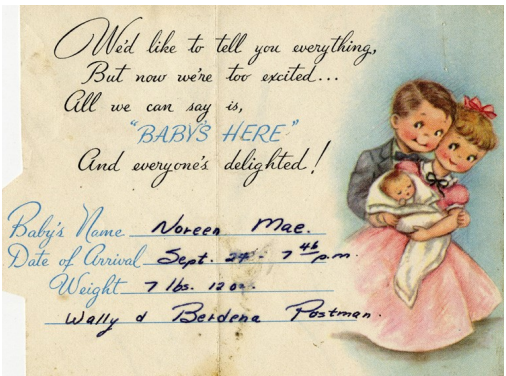 We'd like to tell you everything,
But now we're too excited...
All we can say is,
"BABY'S HERE"
And everyone's delighted!
Baby's Name Noreen Mae.
Date of Arrival Sept. 24 - 7 46 p.m.
Weight 7 lbs. 12 oz.
Wally & Berdena Postman.